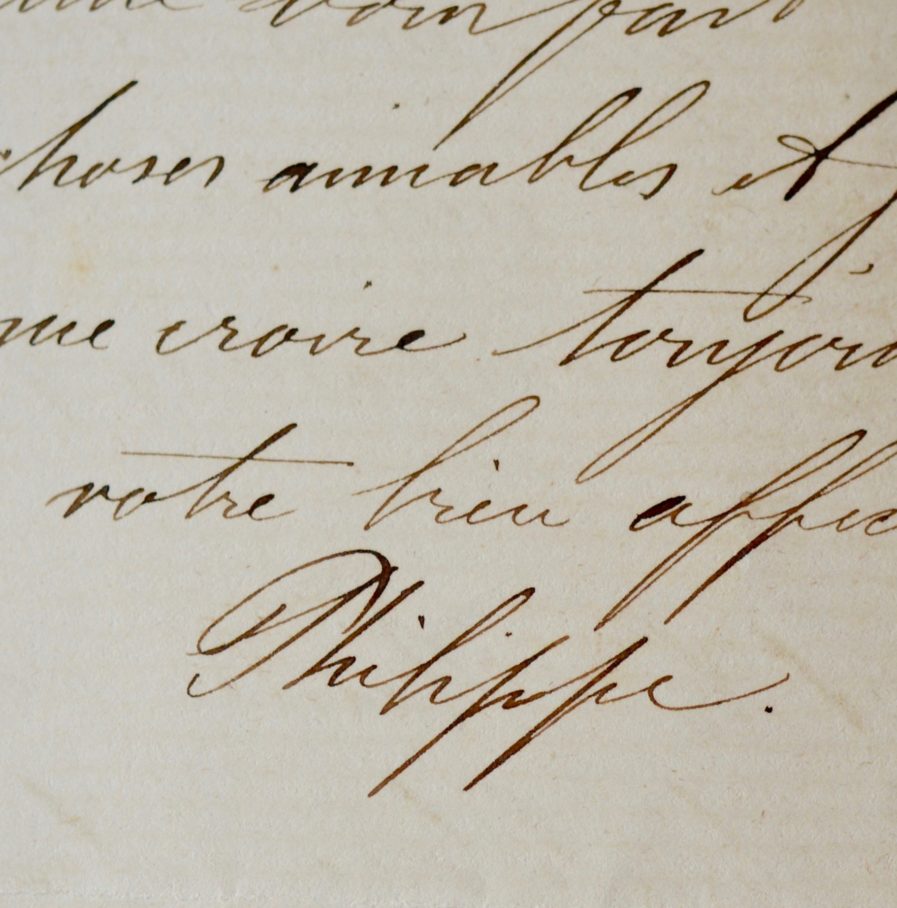 vous fait
choses aimables et
que croire toujou
votre bien affec
Philippe.